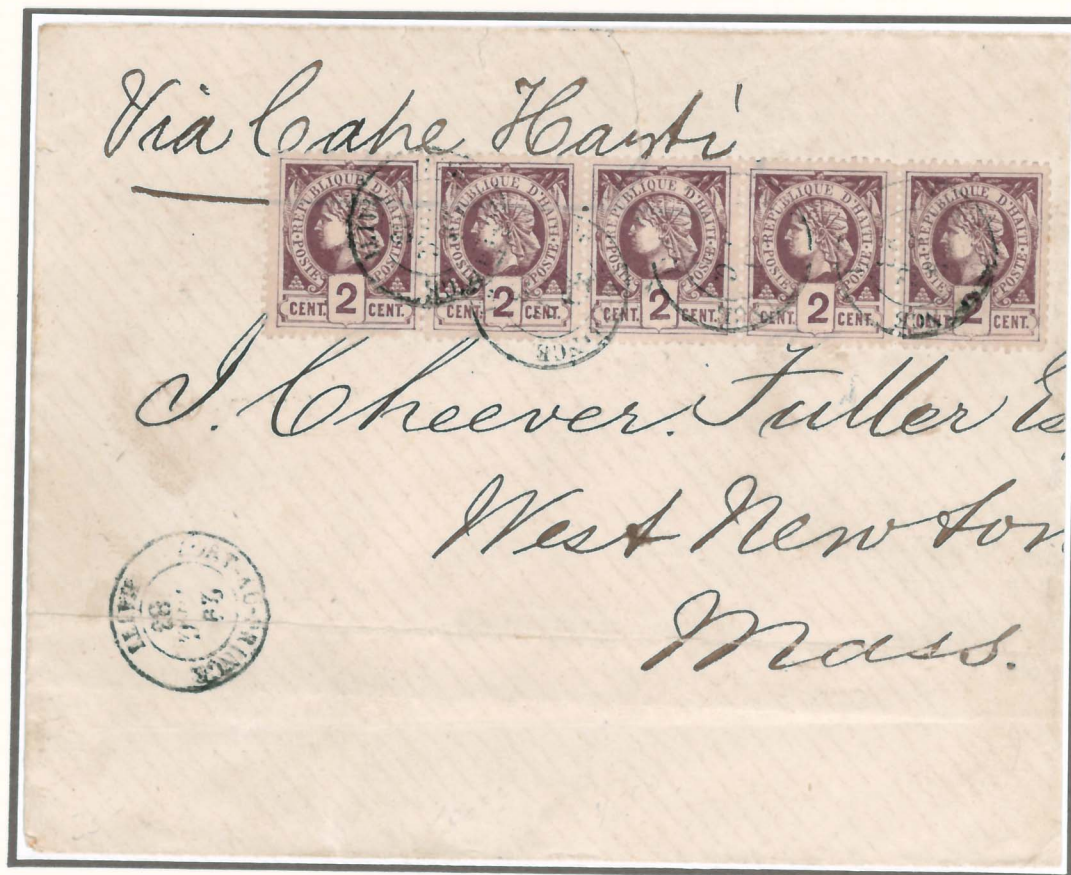 Via Cape Hayti
REPUBLIQUE D'HAITI POSTE POSTE CENT. 2 CENT.
REPUBLIQUE D'HAITI POSTE POSTE CENT. 2 CENT.
REPUBLIQUE D'HAITI POSTE POSTE CENT. 2 CENT.
REPUBLIQUE D'HAITI POSTE POSTE CENT. 2 CENT.
REPUBLIQUE D'HAITI POSTE POSTE CENT. 2 CENT.
I. Cheever. Fuller Es
West Newton
Mass.
PORT-AU-PRINCE
HAITI